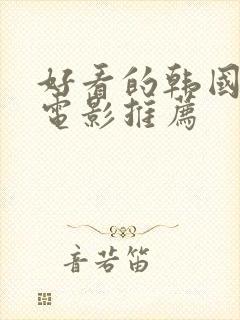 好看的韩國
電影推薦
音若笛